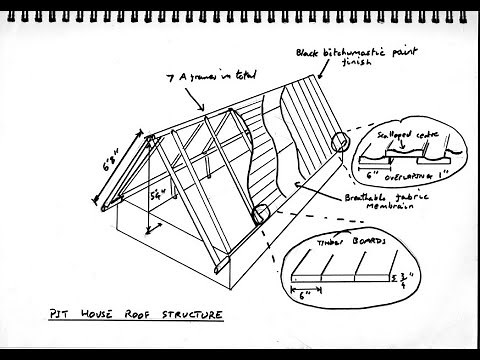 Black bitchumastic paint
finish
7 A frames in total
6'8"
5'4"
Scalloped centre
6"
OVERLAPING 1"
Breathable fabric
Membrain
TIMBER BOARDS
6"
3/4"
PIT HOUSE ROOF STRUCTURE